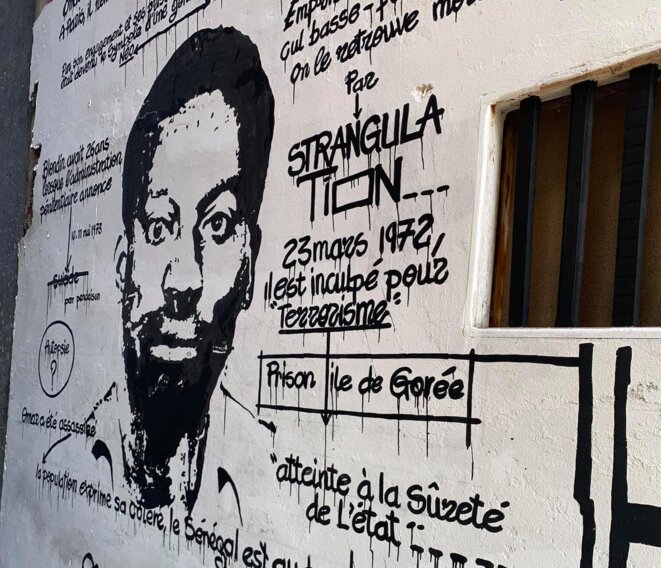 A Paris, il
Par son engagement et ses prises
était devenu le symbole d'une géné
Néo
Blondin avait 26ans
lorsque l'administration
pénitentiaire annonce
10.11 mai 1973
Suicide
par pendaison
Autopsie
?
Omar a été assassiné
la population exprime sa colère, le Sénégal est au
qui basse-
on le retrouve mo
Par
STRANGULA
TION---
23 mars 1972,
il est inculpé pour
"Terrorisme"
Prison île de Gorée
"atteinte à la Sûreté
de L'état